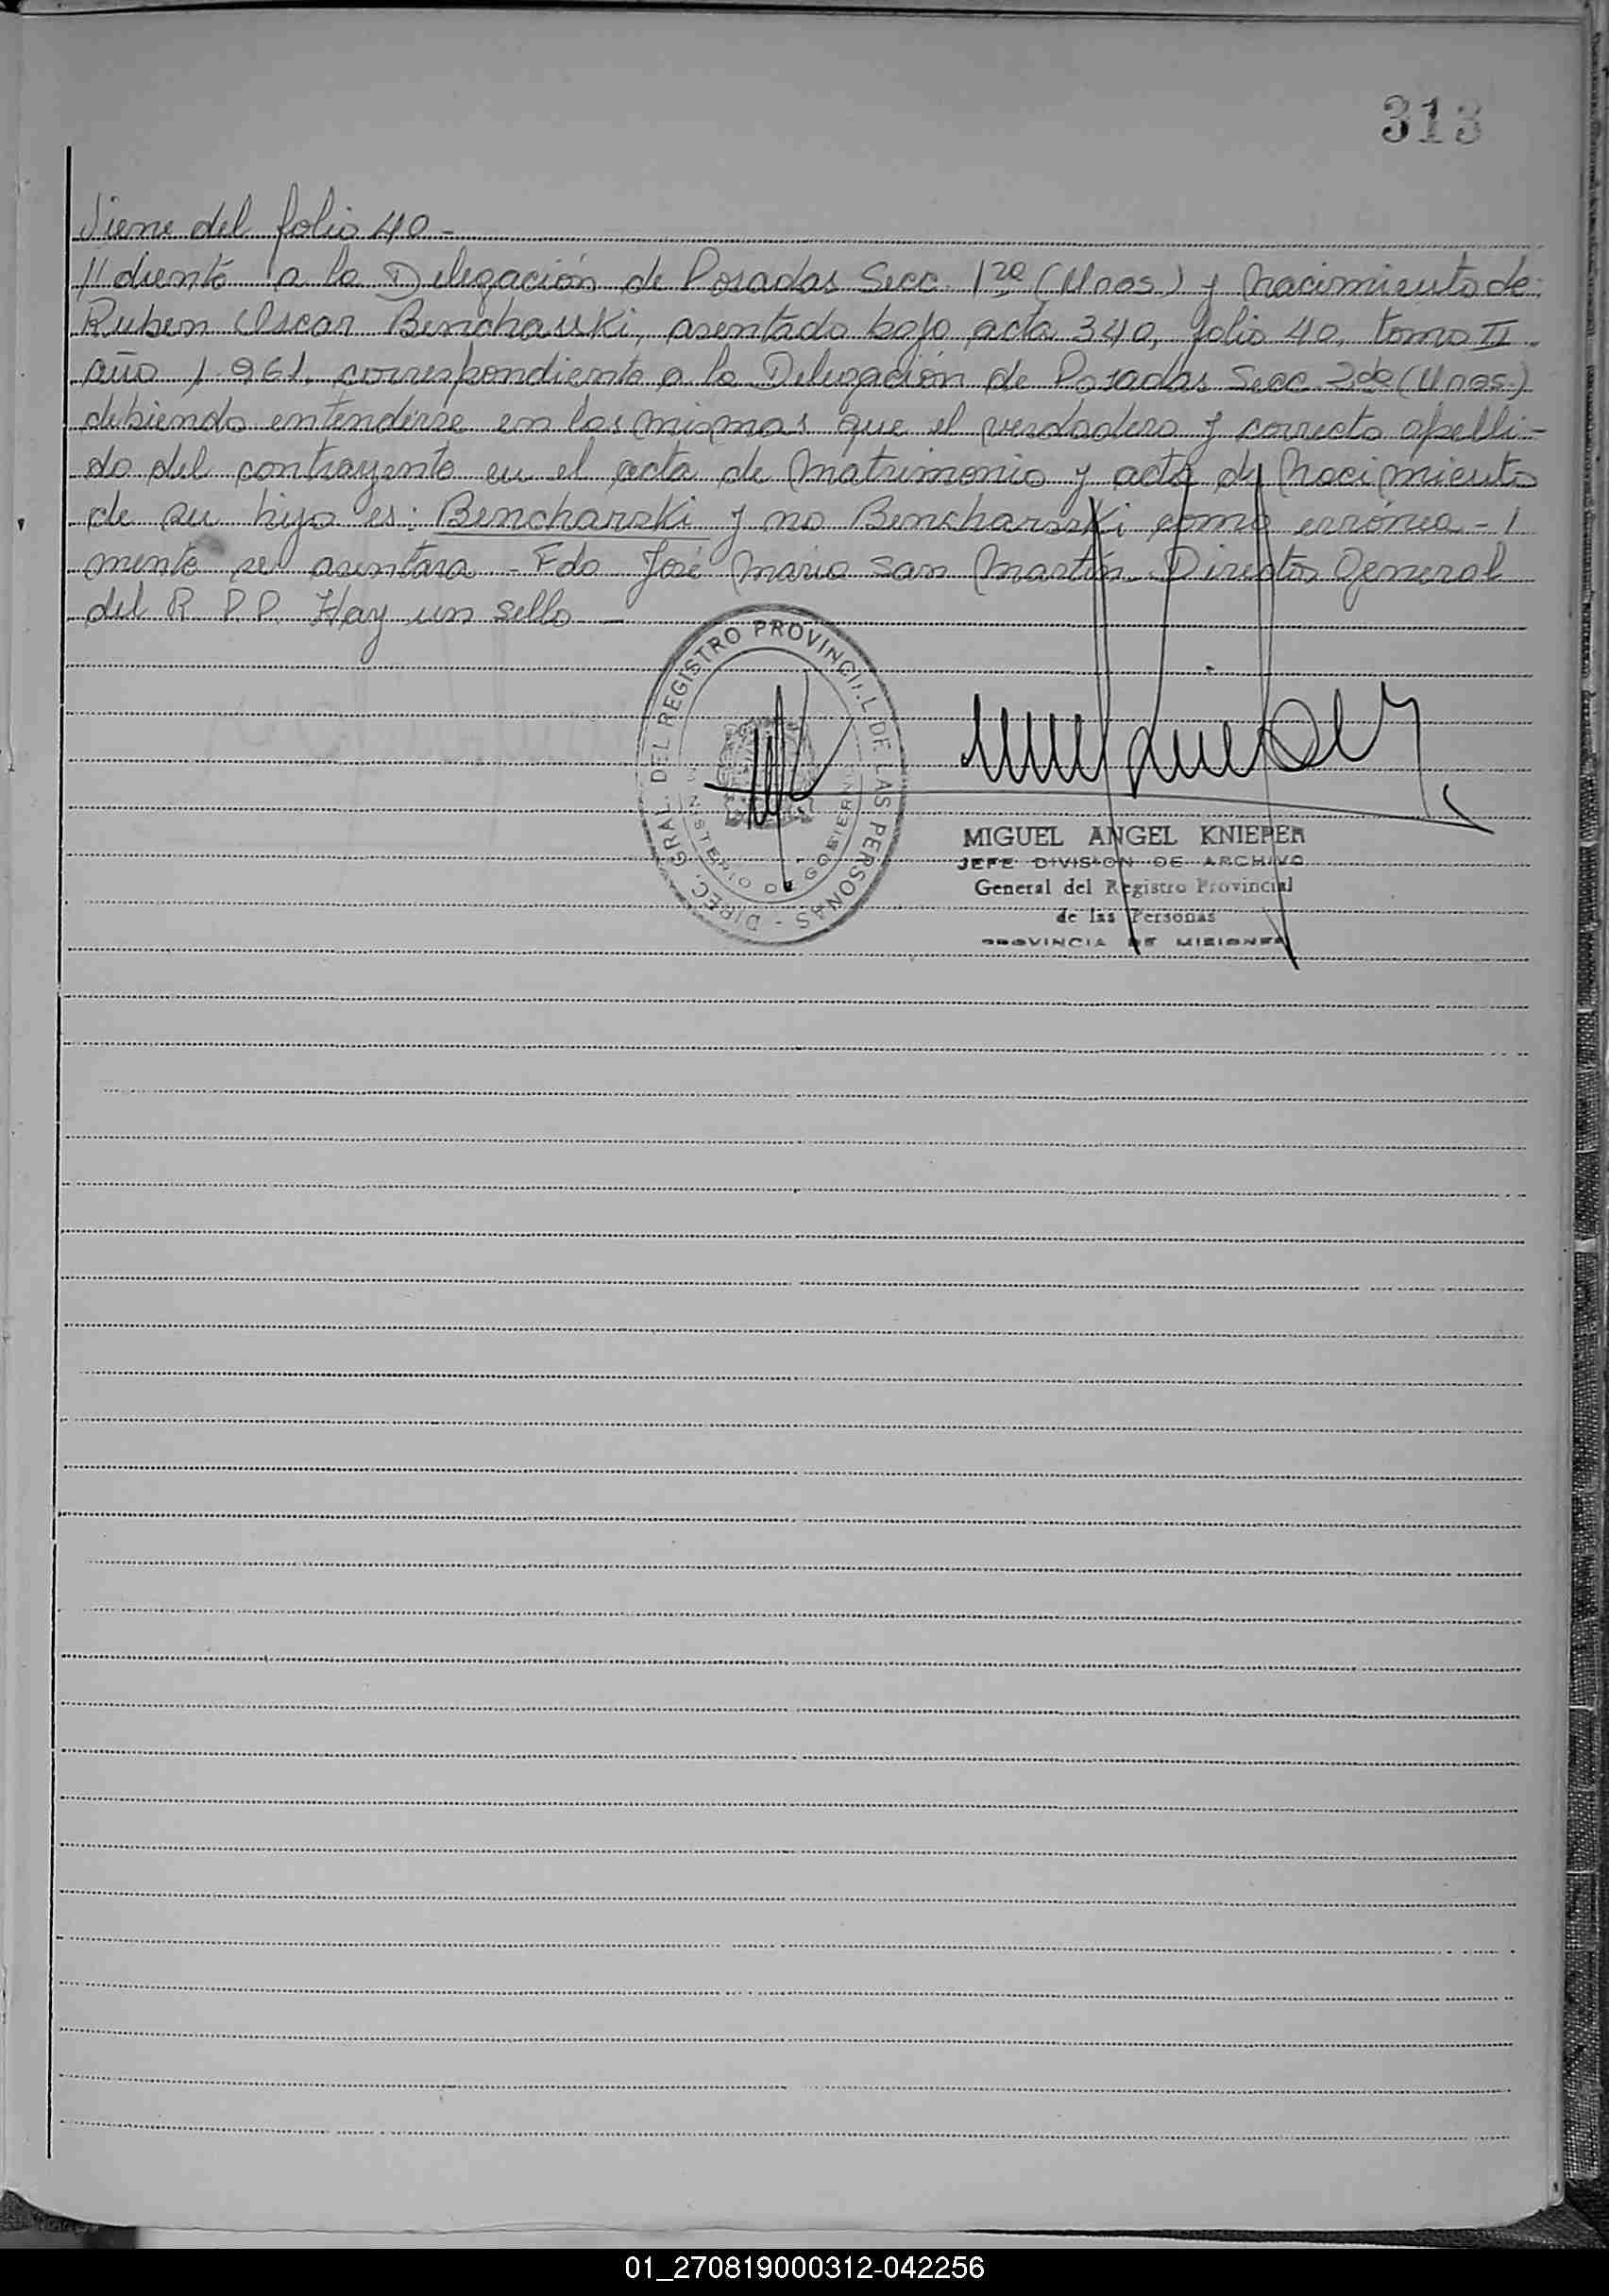 313
Viene del folio 40 -
// diente a la Delegación de Posadas Secc. 1ra (Mnes.) y nacimiento de:
Ruben Oscar Bencharski, asentado bajo acta 340, folio 40, tomo II -
año 1.961, correspondiente a la Delegación de Posadas Secc. 2da (Mnes.)
debiendo entenderse en las mismas que el verdadero y correcto apelli-
do del contrayente en el acta de matrimonio y acta de nacimiento
de su hijo es: Bencharski y no Bencharsski como errónea - /
mente se asentara - Fdo José Maria San Martín. Director General
del R. P. P. Hay un sello -
DIREC. GRAL. DEL REGISTRO PROVINCIAL DE LAS PERSONAS -
MINISTERIO DE GOBIERNO
MIGUEL ANGEL KNIEPER
JEFE DIVISION DE ARCHIVO
General del Registro Provincial
de las Personas
PROVINCIA DE MISIONES
01_270819000312-042256